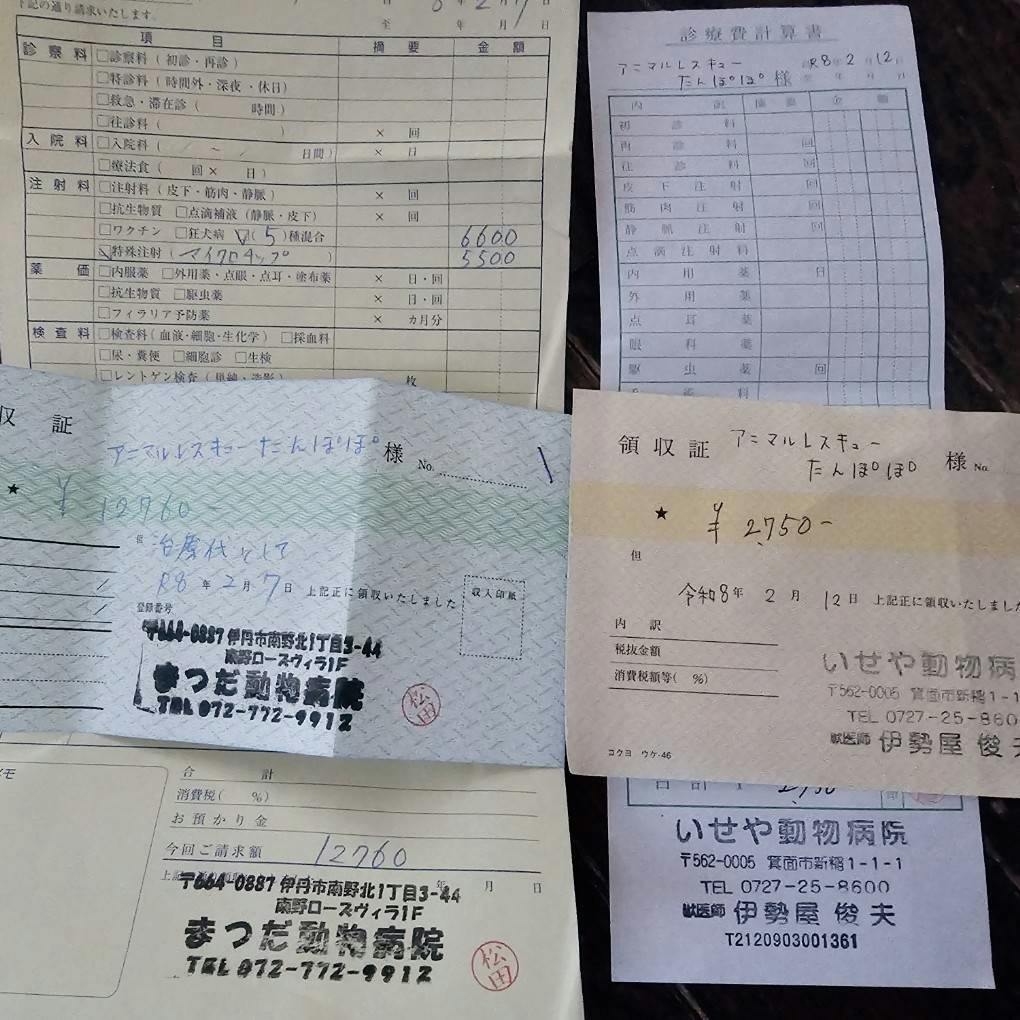 上記の通り請求いたします。
8 年 2 月 7 日
至 年 月 日
項 目 摘 要 金 額
診 察 料 □診察料 ( 初診・再診 )
□特診料 ( 時間外・深夜・休日 )
□救急・滞在診 ( 時間 )
□往診料 ( ) × 回
入 院 料 □入院料 ( / ~ / 日間 ) × 日
□療法食 ( 回 × 日 )
注 射 料 □注射料 ( 皮下・筋肉・静脈 ) × 回
□抗生物質 □点滴補液 (静脈・皮下) × 回
□ワクチン □狂犬病 ☑( 5 )種混合 6600
☑特殊注射 ( マイクロチップ ) 5500
薬 価 □内服薬 □外用薬・点眼・点耳・塗布薬 × 日・回
□抗生物質 □駆虫薬 × 日・回
□フィラリア予防薬 × カ月分
検 査 料 □検査料 ( 血液・細胞・生化学 ) □採血料
□尿・糞便 □細胞診 □生検
□レントゲン検査 ( 単純・造影 ) 枚
収 証
アニマルレスキューたんぽぽ 様 No.
★ ¥ 12760
但 治療代として
R8 年 2 月 7 日 上記正に領収いたしました
収入印紙
登録番号
〒664-0887 伊丹市南野北1丁目3-44
南野ローズヴィラ1F
まつだ動物病院
TEL 072-772-9912
松田
メモ
合 計
消費税( %)
お預かり金
今回ご請求額 12760
年 月 日
〒664-0887 伊丹市南野北1丁目3-44
南野ローズヴィラ1F
まつだ動物病院
TEL 072-772-9912
松田
診療費計算書
アニマルレスキュー
たんぽぽ 様
R8 年 2 月 12 日
至 年 月 日
内 訳 摘 要 金 額
初 診 料
再 診 料 回
往 診 料 回
皮 下 注 射 回
筋 肉 注 射 回
静 脈 注 射 回
点 滴 注 射 料
内 用 薬 日
外 用 薬
点 耳 薬
眼 科 薬
駆 虫 薬 回
領 収 証
アニマルレスキュー
たんぽぽ 様 No.
★ ¥ 2,750-
但
令和8年 2 月 12 日 上記正に領収いたしました
内 訳
税抜金額
消費税額等( %)
コクヨ ウケ-46
いせや動物病
〒562-0005 箕面市新稲1-1
TEL 0727-25-860
獣医師 伊勢屋 俊夫
合 計
いせや動物病院
〒562-0005 箕面市新稲1-1-1
TEL 0727-25-8600
獣医師 伊勢屋 俊夫
T2120903001361